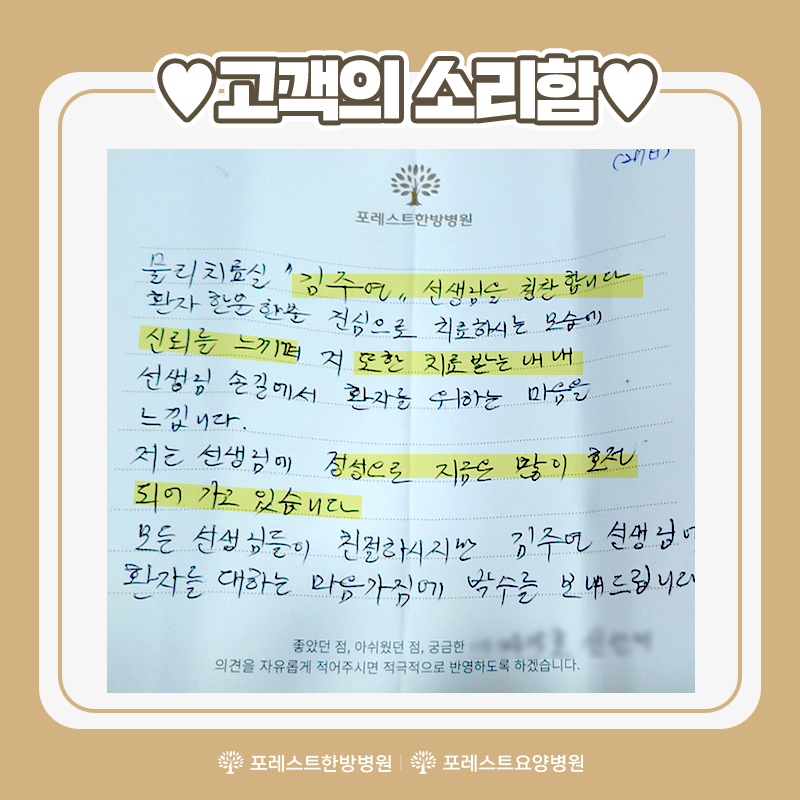 ♥고객의 소리함♥
포레스트한방병원
물리치료실 "김주연" 선생님을 칭찬합니다
환자 한분한분 진심으로 치료하시는 모습에
신뢰를 느끼며 저 또한 치료받는 내내
선생님 손길에서 환자를 위하는 마음을
느낍니다.
저는 선생님에 정성으로 지금은 많이 호전
되어 가고 있습니다
모든 선생님들이 친절하시지만 김주연 선생님
환자를 대하는 마음가짐에 박수를 보내드립니다
좋았던 점, 아쉬웠던 점, 궁금한
의견을 자유롭게 적어주시면 적극적으로 반영하도록 하겠습니다.
포레스트한방병원 | 포레스트요양병원